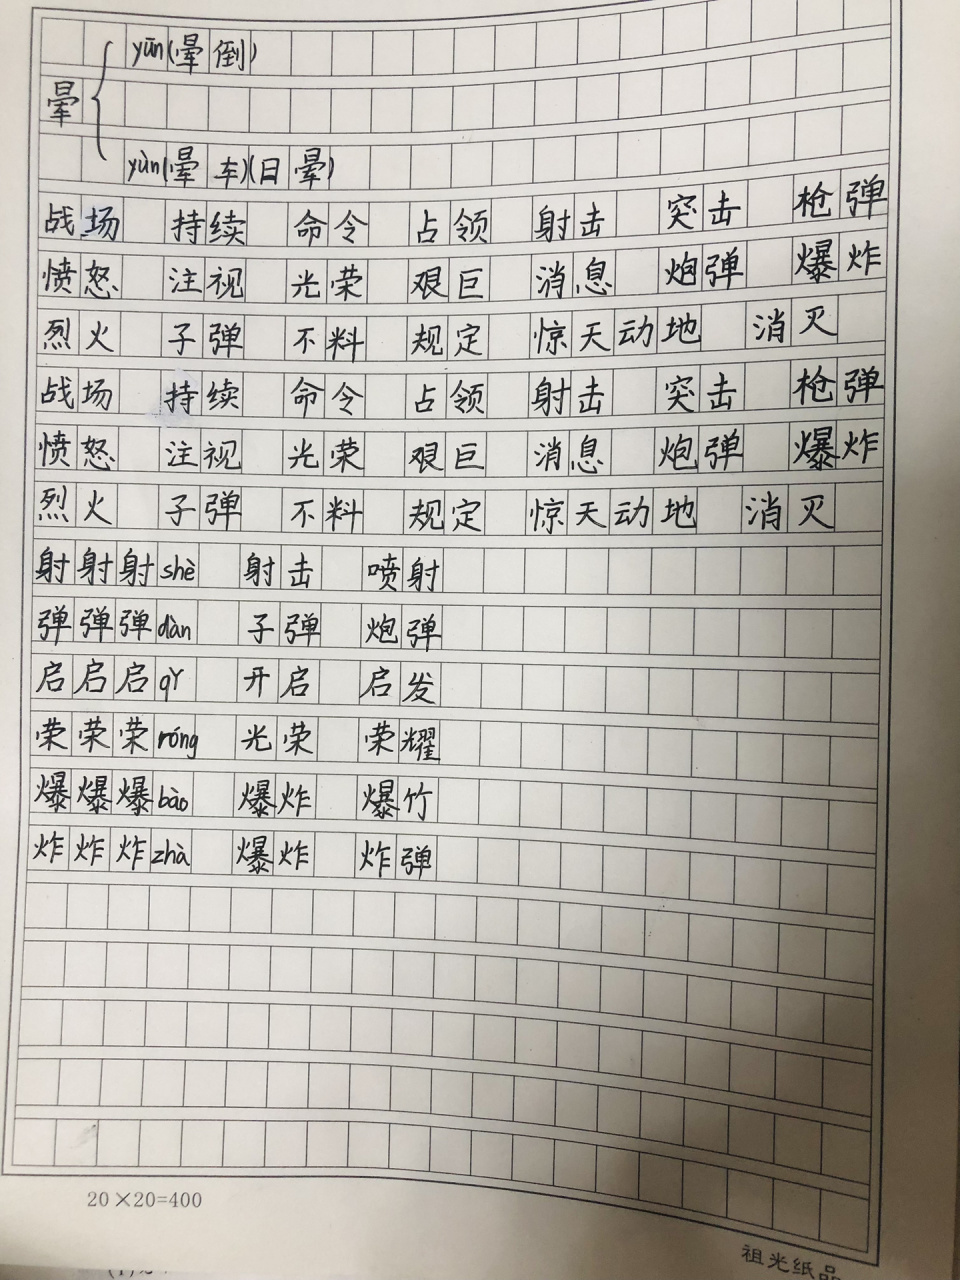 yūn(晕倒)
晕
yùn(晕车)(日晕)
战场 持续 命令 占领 射击 突击 枪弹
愤怒 注视 光荣 艰巨 消息 炮弹 爆炸
烈火 子弹 不料 规定 惊天动地 消灭
战场 持续 命令 占领 射击 突击 枪弹
愤怒 注视 光荣 艰巨 消息 炮弹 爆炸
烈火 子弹 不料 规定 惊天动地 消灭
射射射shè 射击 喷射
弹弹弹dàn 子弹 炮弹
启启启qǐ 开启 启发
荣荣荣róng 光荣 荣耀
爆爆爆bào 爆炸 爆竹
炸炸炸zhà 爆炸 炸弹
20×20=400
祖光纸品